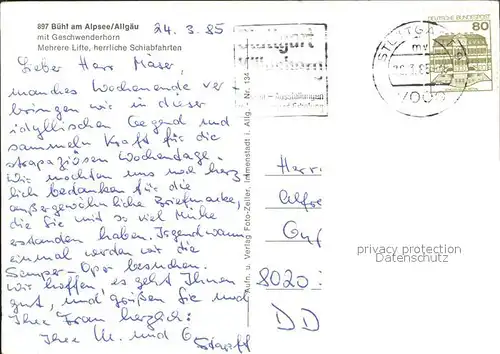 897 Bühl am Alpsee/Allgäu
mit Geschwenderhorn
Mehrere Lifte, herrliche Schiabfahrten
24. 3. 85
Lieber Herr Mäser,
manches Wochenende ver
bringen wir in dieser
idyllischen Gegend und
sammeln Kraft für die
strapaziösen Wochentage.
Wir möchten uns noch herz
lich bedanken für die
außergewöhnliche Briefmarke,
die Sie mit so viel Mühe
erstanden haben. Irgendwann
einmal werden wir die
Semper-Oper besuchen.
Wir hoffen, es geht Ihnen
gut, und grüßen Sie und
Ihre Frau herzlich:
Ihre M. und G
Aufn. u. Verlag Foto-Zeiler, Immenstadt i. Allg. - Nr. 134
Stuttgart
Ausstellungen
STUTTGART
7000
DEUTSCHE BUNDESPOST
80
Herrn
Alfre
8020
DD
privacy protection
Datenschutz